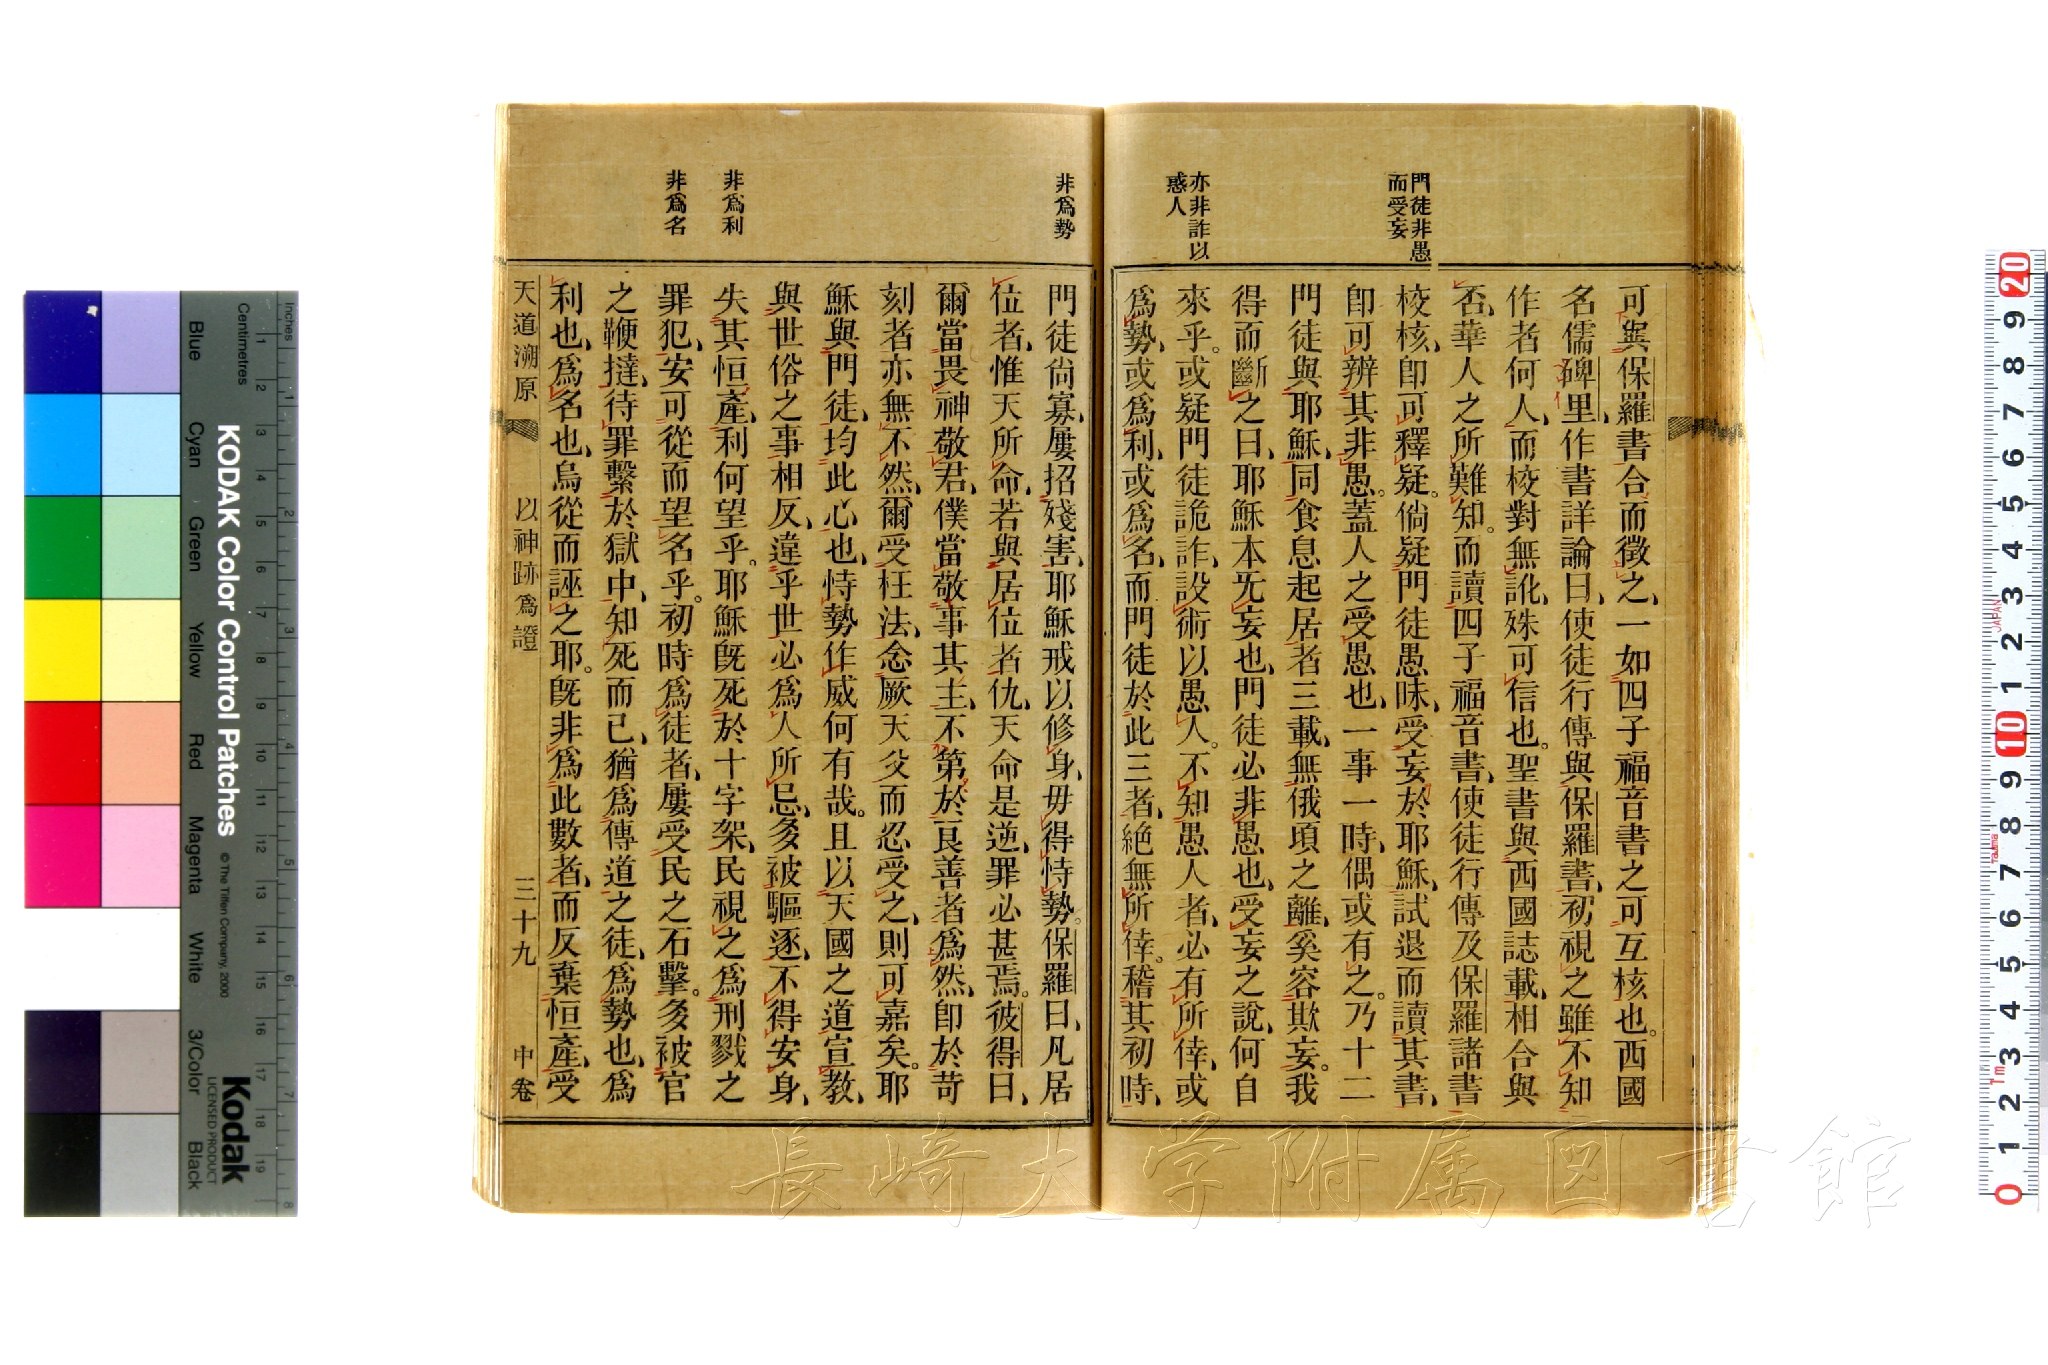 門徒非愚
而受妄
亦非詐以
惑人
可與保羅書合而徵之、一如四子福音書之可互核也。西國
名儒碑里作書詳論曰、使徒行傳與保羅書、初視之雖不知
作者何人、而校對無訛、殊可信也。聖書與西國誌載、相合與
否、華人之所難知。而讀四子福音書、使徒行傳及保羅諸書
校核、卽可釋疑。倘疑門徒愚昧、受妄於耶穌、試退而讀其書、
卽可辨其非愚。蓋人之受愚也、一事一時、偶或有之。乃十二
門徒與耶穌、同食息起居者三載、無俄頃之離、奚容欺妄。我
得而斷之曰、耶穌本旡妄也、門徒必非愚也、受妄之說、何自
來乎。或疑門徒詭詐、設術以愚人。不知愚人者、必有所倖、或
爲勢、或爲利、或爲名、而門徒於此三者、絕無所倖。稽其初時、
非爲勢
非爲利
非爲名
門徒尙寡、屢招殘害、耶穌戒以修身、毋得恃勢。保羅曰、凡居
位者、惟天所命、若與居位者仇、天命是逆、罪必甚焉。彼得曰、
爾當畏神敬君、僕當敬事其主、不第於良善者爲然、卽於苛
刻者亦無不然、爾受枉法、念厥天父而忍受之、則可嘉矣。耶
穌與門徒、均此心也、恃勢作威何有哉。且以天國之道宣教、
與世俗之事相反、違乎世必爲人所忌、多被驅逐、不得安身、
失其恒產、利何望乎。耶穌旣死於十字架、民視之爲刑戮之
罪犯、安可從而望名乎。初時爲徒者、屢受民之石擊。多被官
之鞭撻、待罪繫於獄中、知死而已、猶爲傳道之徒、爲勢也、爲
利也、爲名也、烏從而誣之耶。旣非爲此數者、而反棄恒產、受
天道溯原 以神跡爲證 三十九 中卷
長崎大学附属図書館
KODAK Color Control Patches
©The Tiffen Company, 2000
Kodak
LICENSED PRODUCT
Inches
Centimetres
Blue
Cyan
Green
Yellow
Red
Magenta
White
3/Color
Black
JAPAN
Tajima